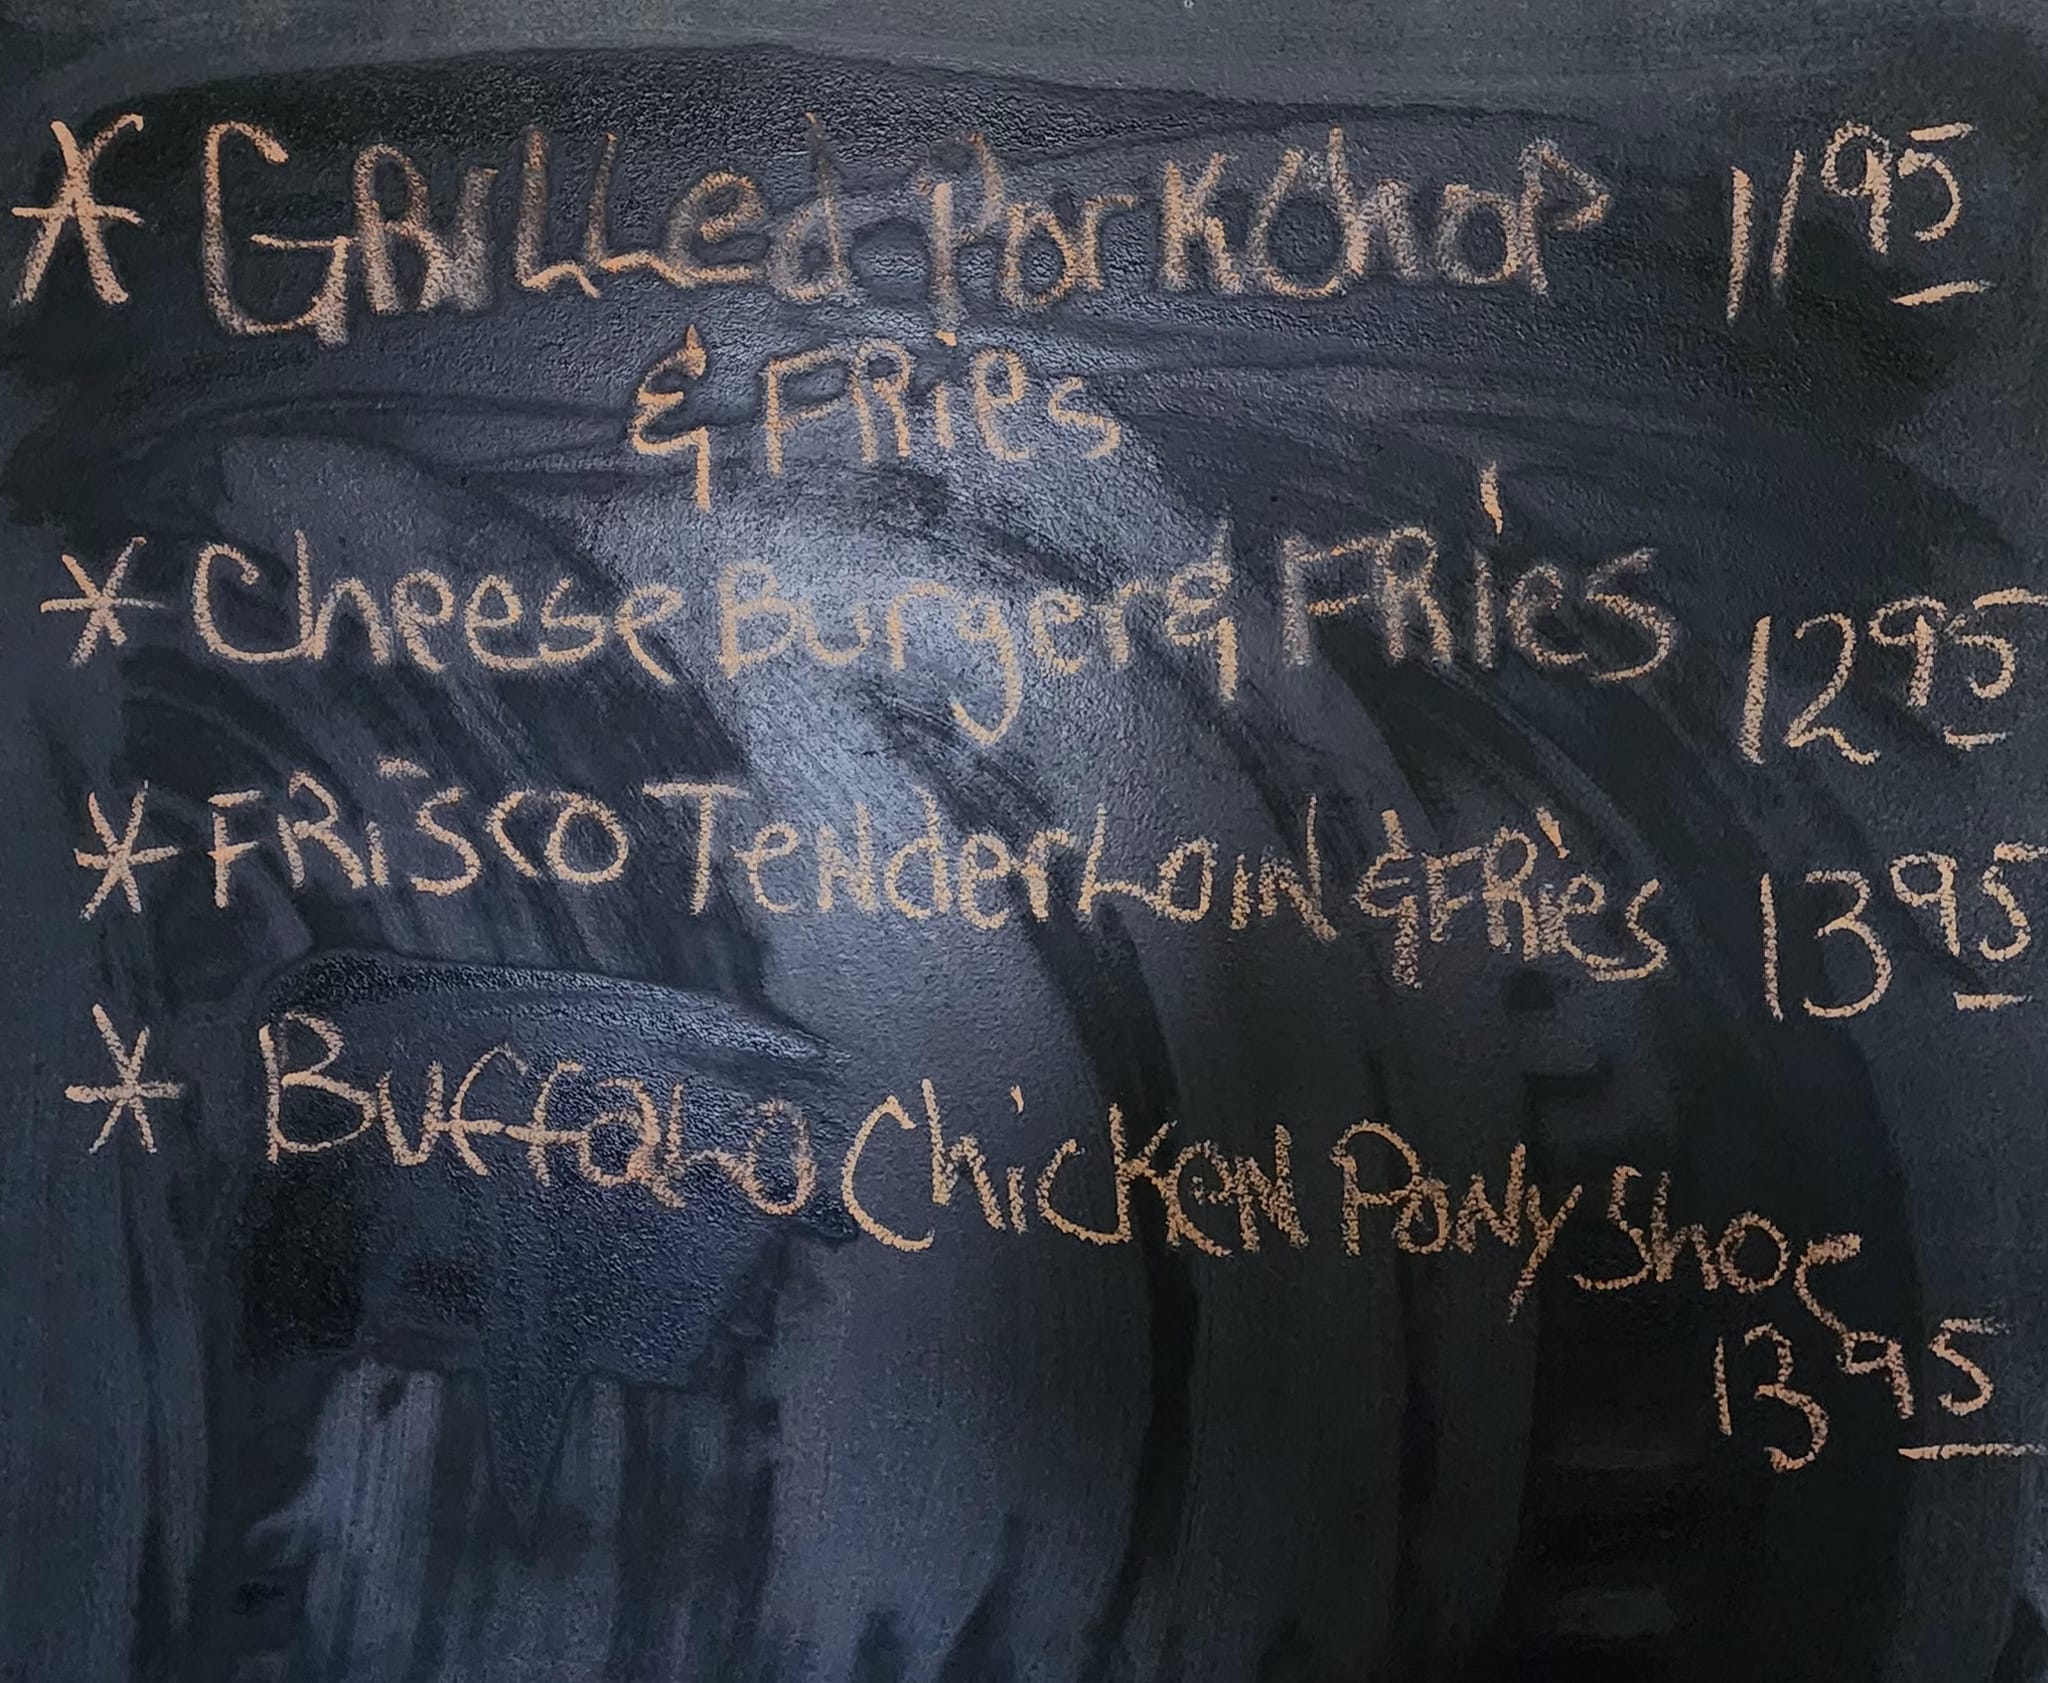 * GRiLLed PorkChop 11 95
& FRies
* Cheese Burger & FRies 12 95
* FRisco TenderLoin & FRies 13 95
* BuffaLo Chicken Pony Shoe
13 95